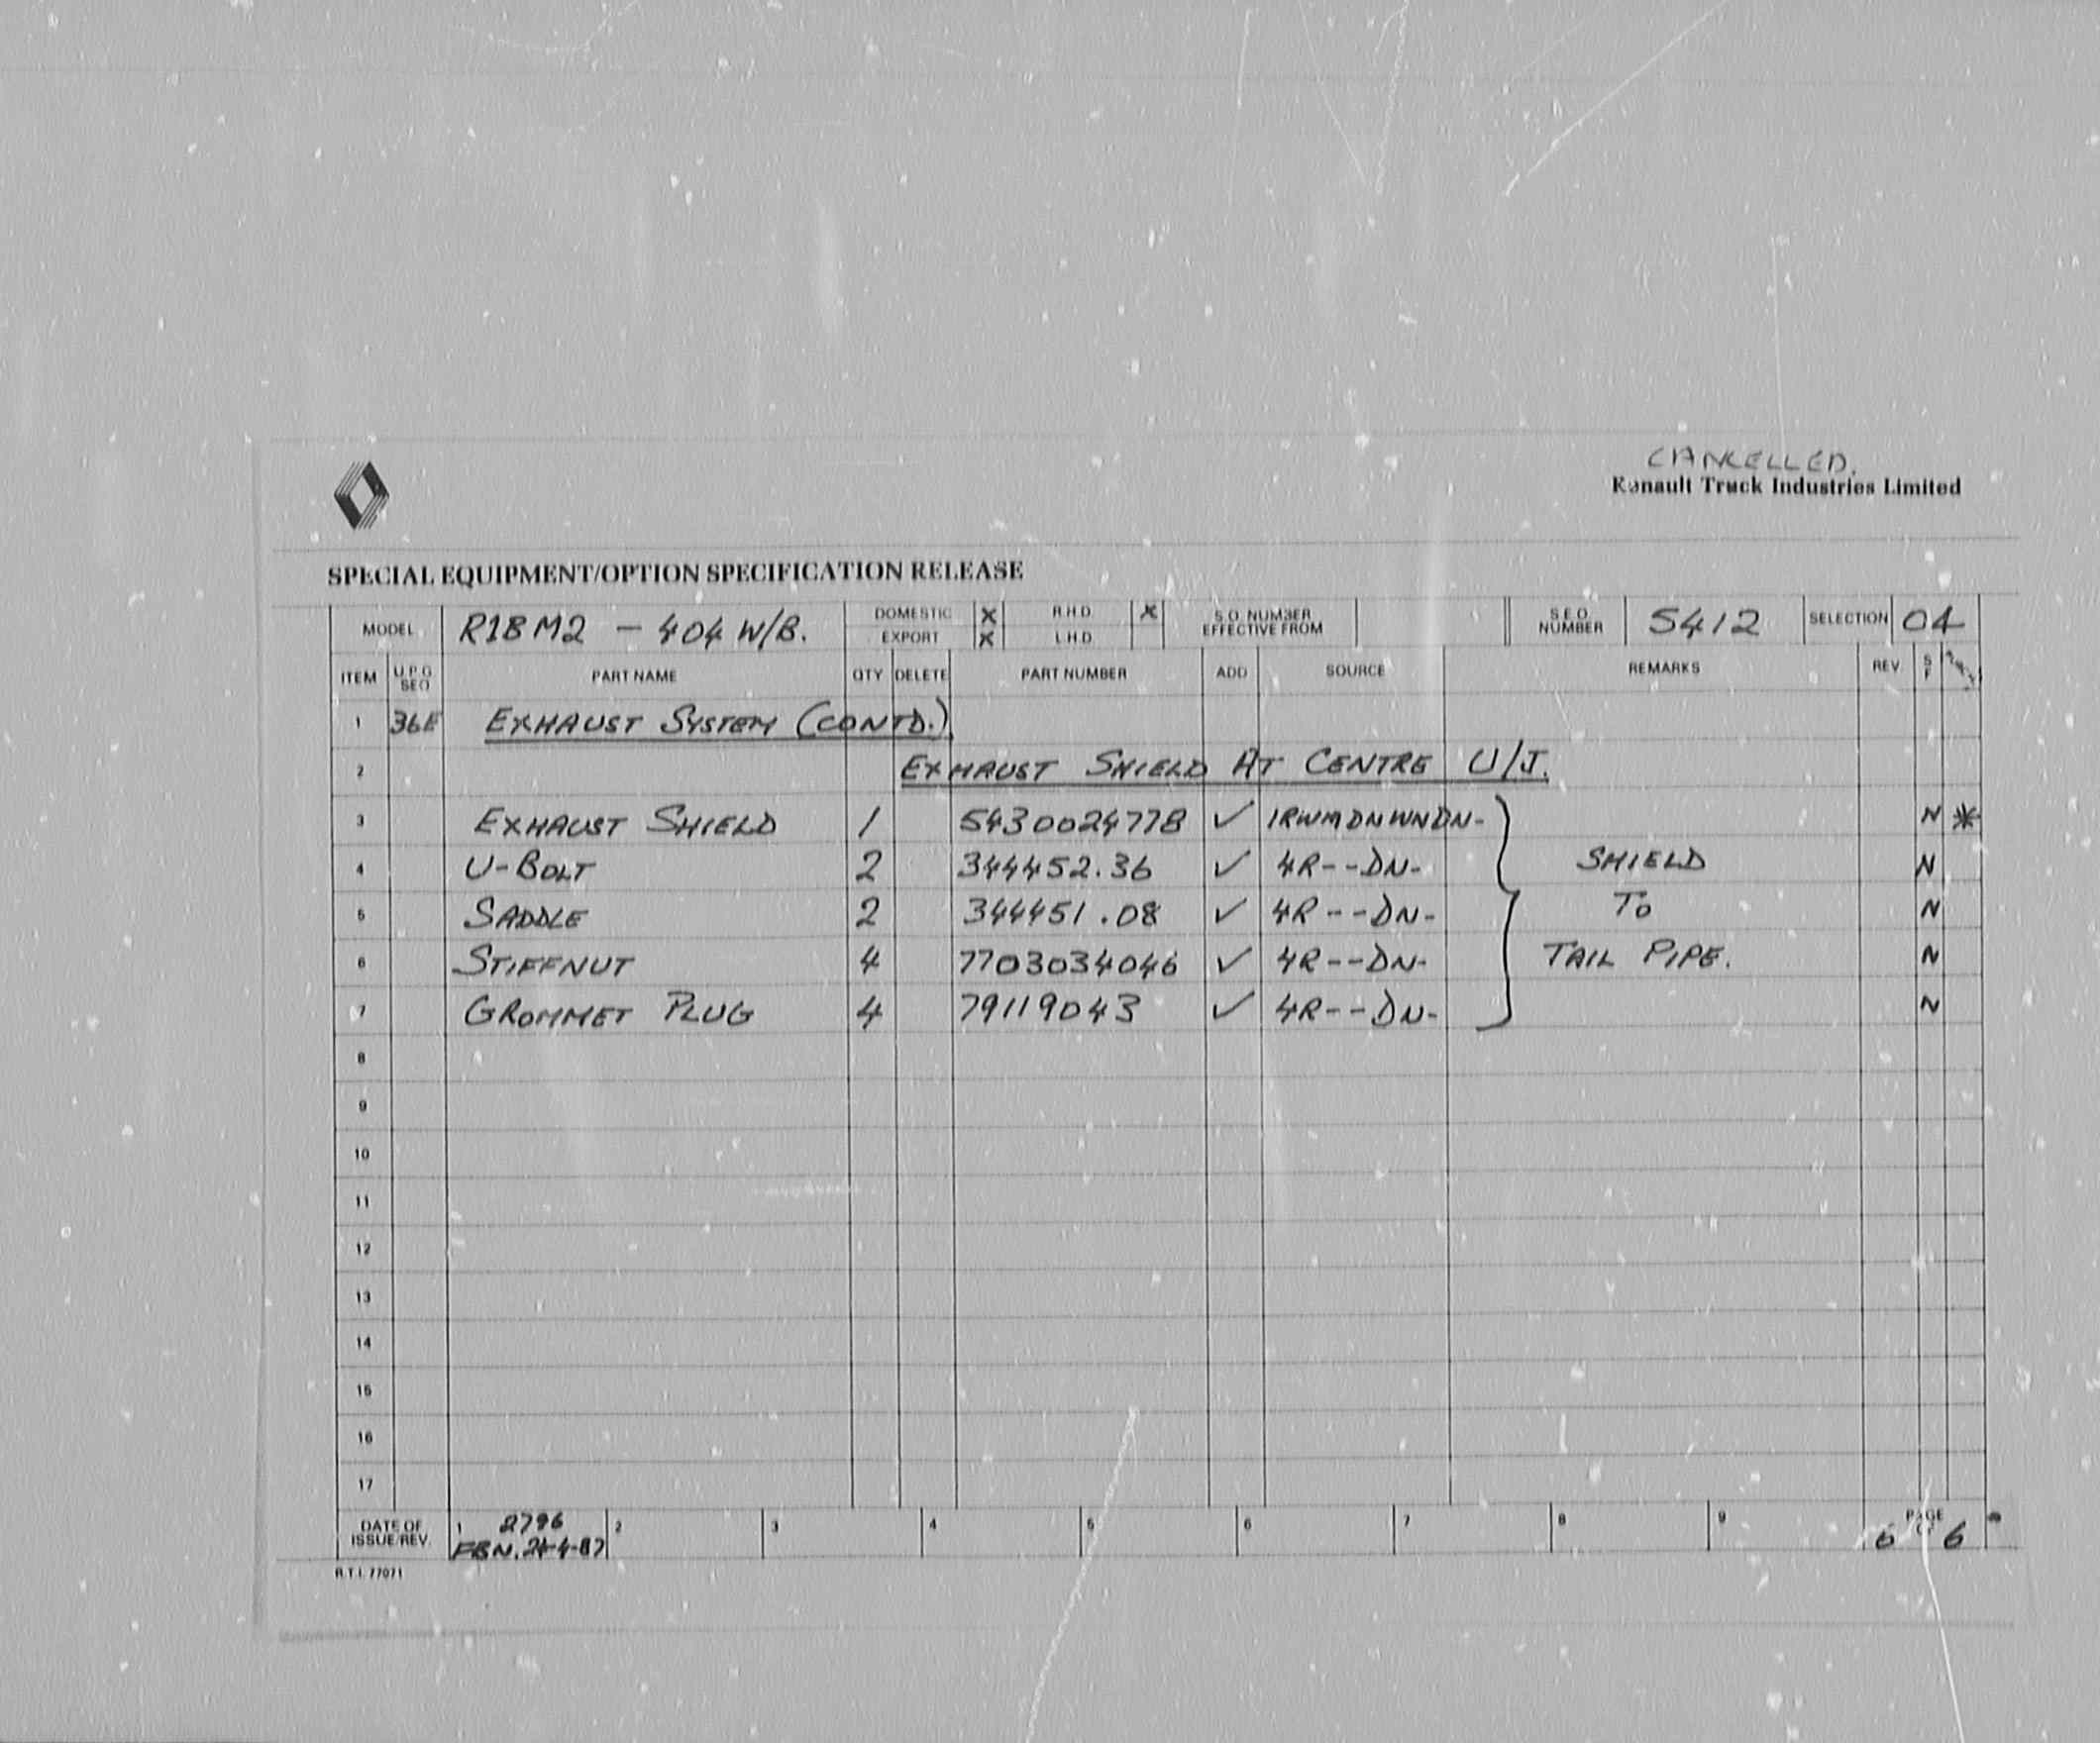 CANCELLED.
Renault Truck Industries Limited
SPECIAL EQUIPMENT/OPTION SPECIFICATION RELEASE
MODEL R18M2 - 404 W/B. DOMESTIC X R.H.D. X S.O. NUMBER EFFECTIVE FROM S.E.O. NUMBER 5412 SELECTION 04
EXPORT X L.H.D.
ITEM U.P.G SEQ PART NAME QTY DELETE PART NUMBER ADD SOURCE REMARKS REV S F
1 36E EXHAUST SYSTEM (CONTD.)
2 EXHAUST SHIELD AT CENTRE U/J.
3 EXHAUST SHIELD 1 5430024778 ✓ 1RWMDNWNDN- N *
4 U-BOLT 2 344452.36 ✓ 4R--DN- SHIELD N
5 SADDLE 2 344451.08 ✓ 4R--DN- TO N
6 STIFFNUT 4 7703034046 ✓ 4R--DN- TAIL PIPE. N
7 GROMMET PLUG 4 79119043 ✓ 4R--DN- N
8
9
10
11
12
13
14
15
16
17
DATE OF ISSUE/REV. 1 2796 2 3 4 5 6 7 8 9 PAGE
FBN. 24-4-87 6 OF 6
R.T.I. 77071